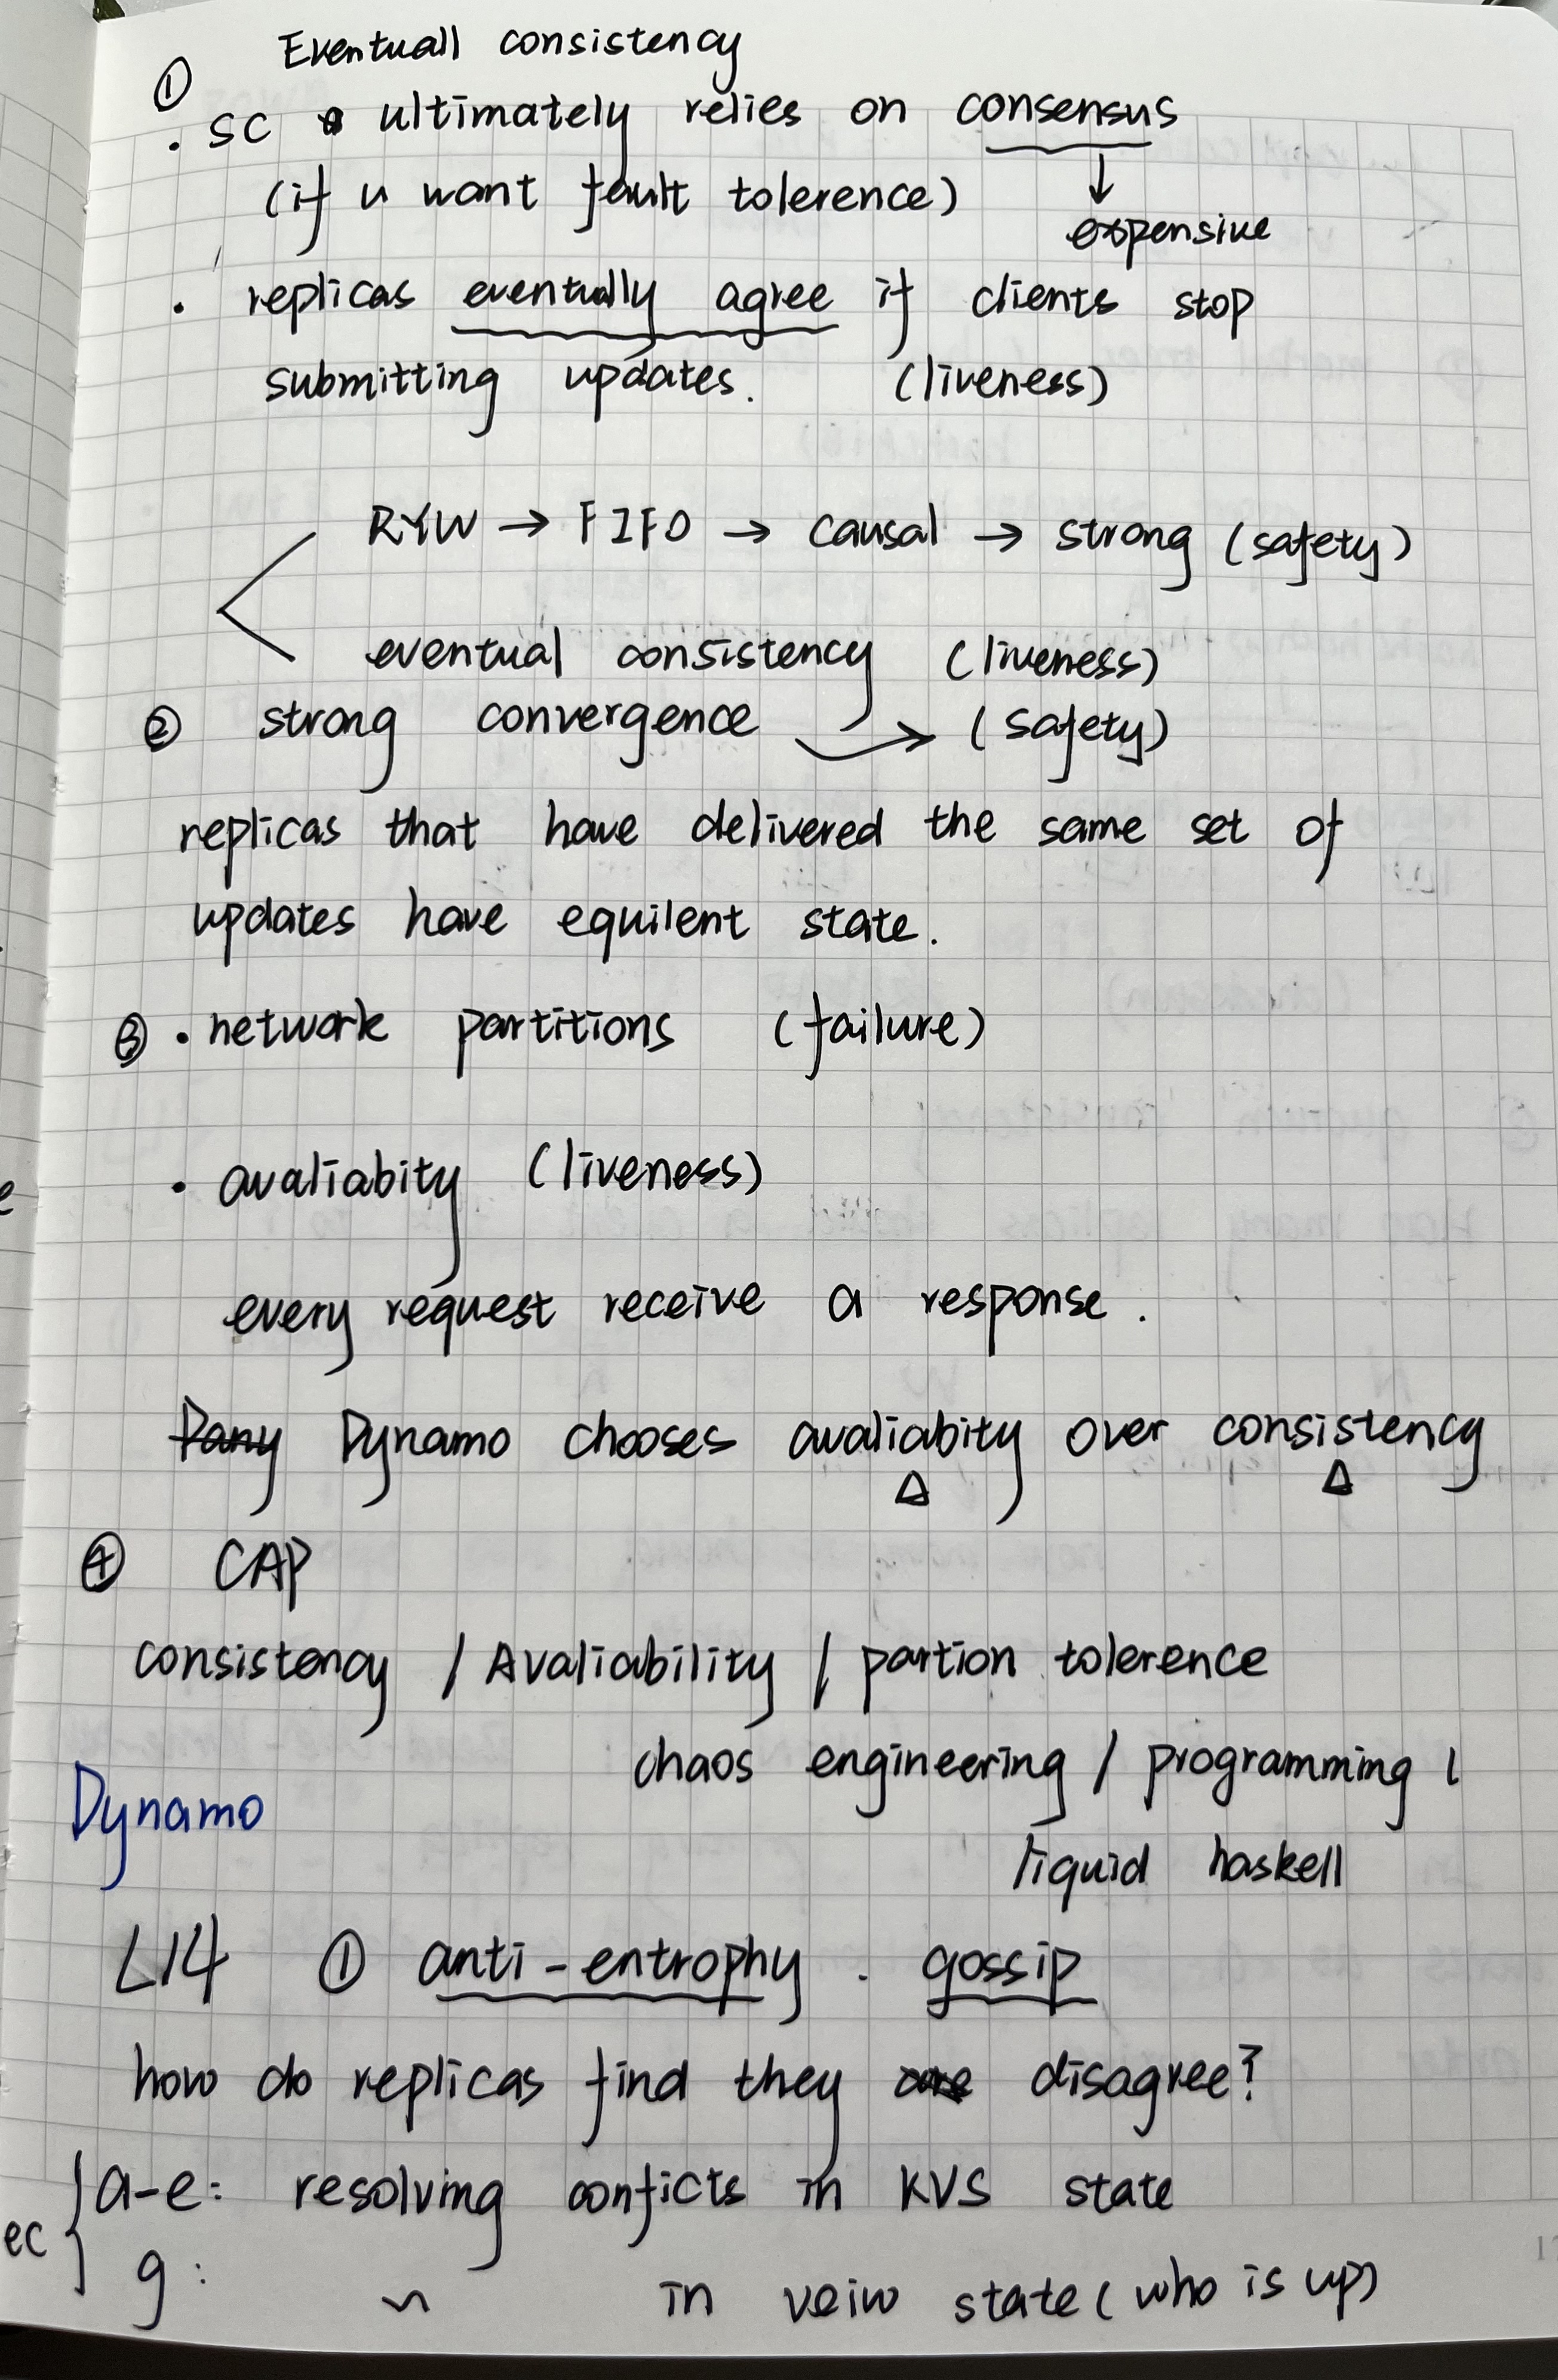 Eventuall consistency
① . SC ultimately relies on consensus
(if u want fault tolerence) ↓
expensive
. replicas eventually agree if clients stop
submitting updates. (liveness)
RYW → FIFO → causal → strong (safety)
eventual consistency (liveness)
② strong convergence → (safety)
replicas that have delivered the same set of
updates have equilent state.
③ . network partitions (failure)
. avaliabity (liveness)
every request receive a response.
Dynamo chooses avaliabity over consistency
Δ Δ
④ CAP
consistency / Avaliability / partion tolerence
chaos engineering / programming l
Dynamo
liquid haskell
L14 ① anti-entrophy . gossip
how do replicas find they disagree?
a-e: resolving conficts in KVS state
ec {
g: ~ in veiw state (who is up)